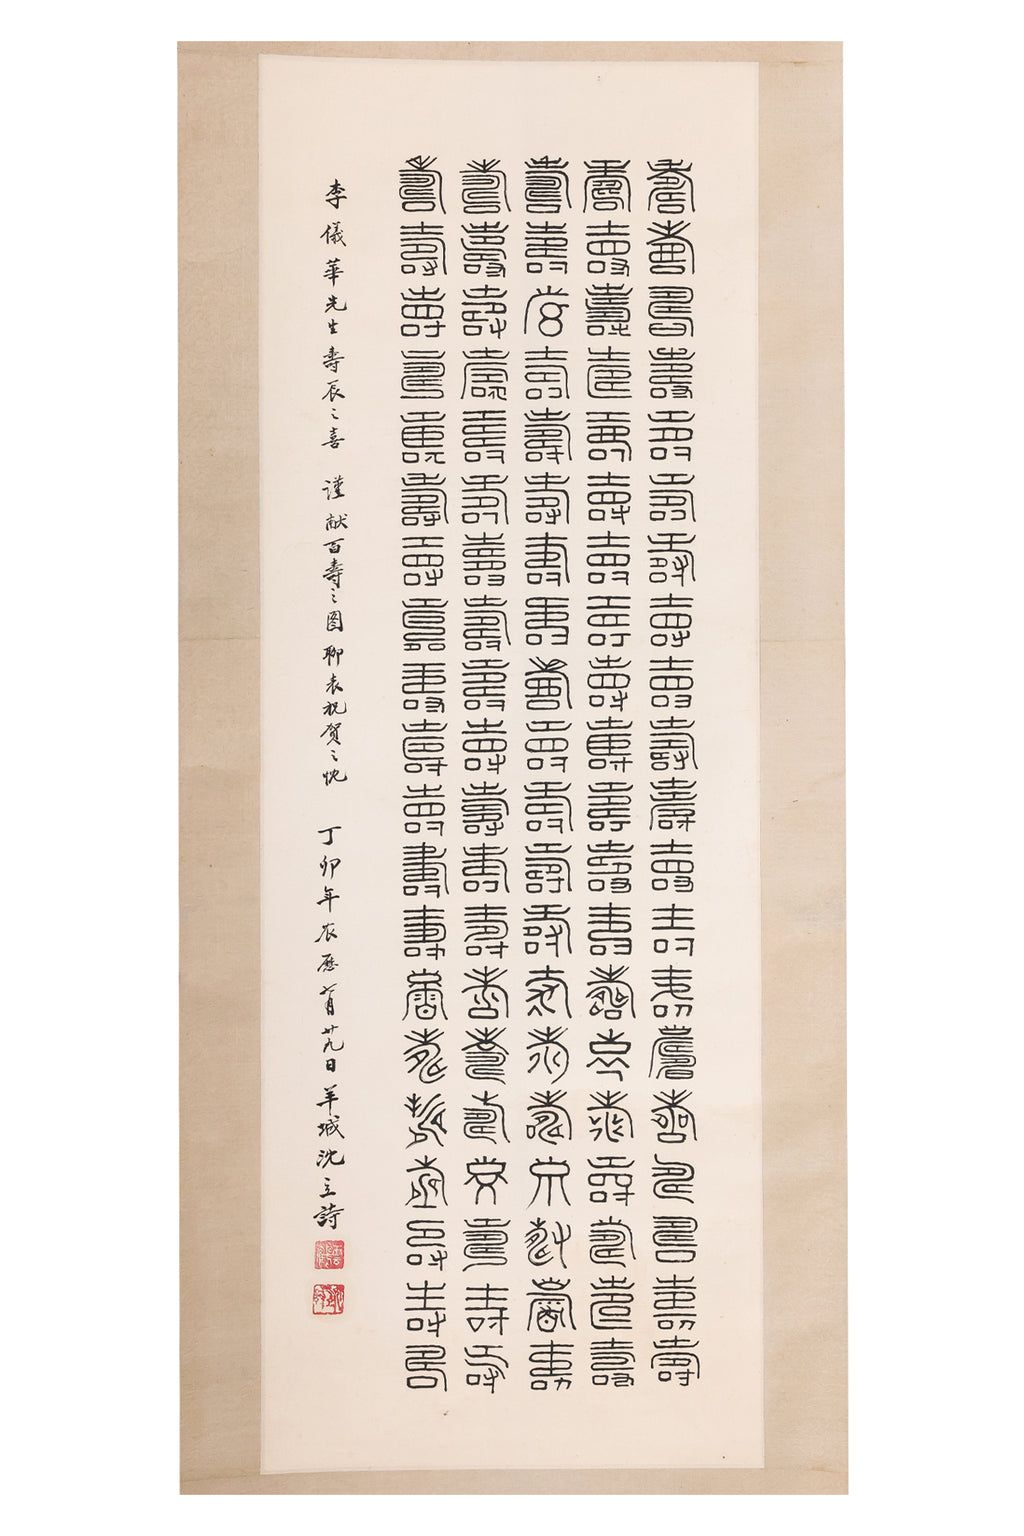 壽壽壽壽壽壽壽壽壽壽壽壽壽壽壽壽壽壽壽壽
壽壽壽壽壽壽壽壽壽壽壽壽壽壽壽壽壽壽壽壽
壽壽壽壽壽壽壽壽壽壽壽壽壽壽壽壽壽壽壽壽
壽壽壽壽壽壽壽壽壽壽壽壽壽壽壽壽壽壽壽壽
壽壽壽壽壽壽壽壽壽壽壽壽壽壽壽壽壽壽壽壽
李儀華先生壽辰之喜 谨献百壽之图聊表祝贺之忱 丁卯年农歷月廿九日羊城沈立詩